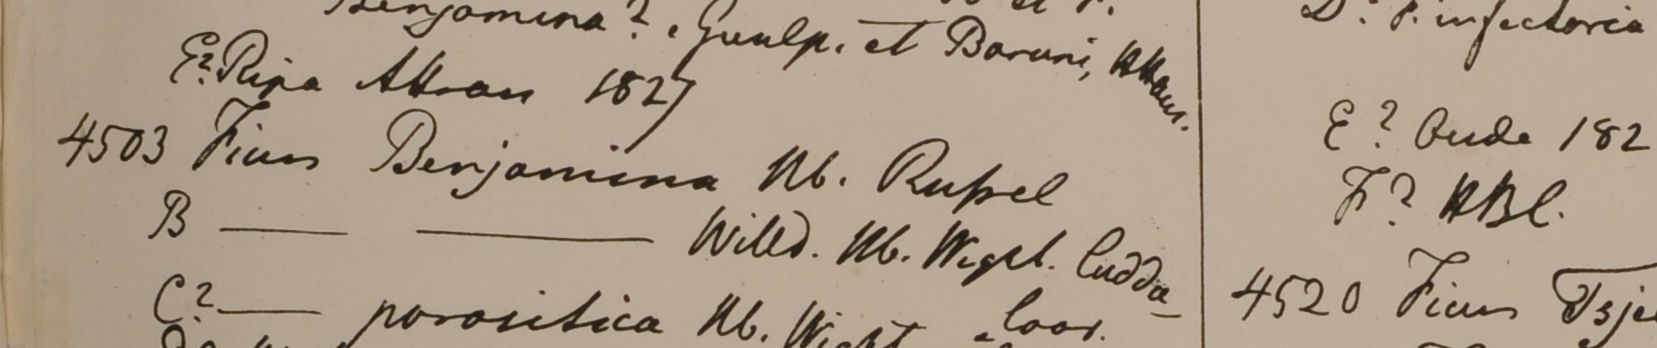 Benjamina? . Guulp. et Baruni, HHam.
E? Ripa Attran 1827
4503 Ficus Benjamina Hb. Russel
B — — Willd. Hb. Wight. Cudda-
C? — parasitica Hb. Wight loor.
D: F. infectoria
E? Oude 182
F? HBC.
4520 Ficus Tsje